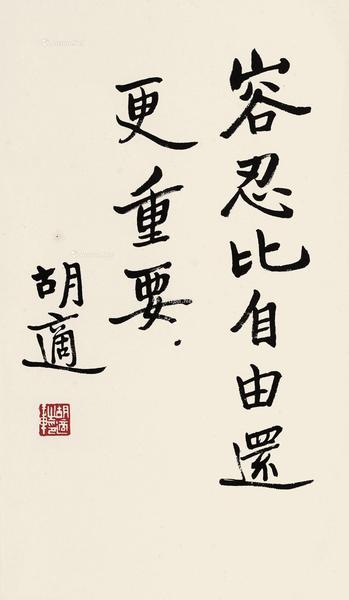 容忍比自由還
更重要.
胡適